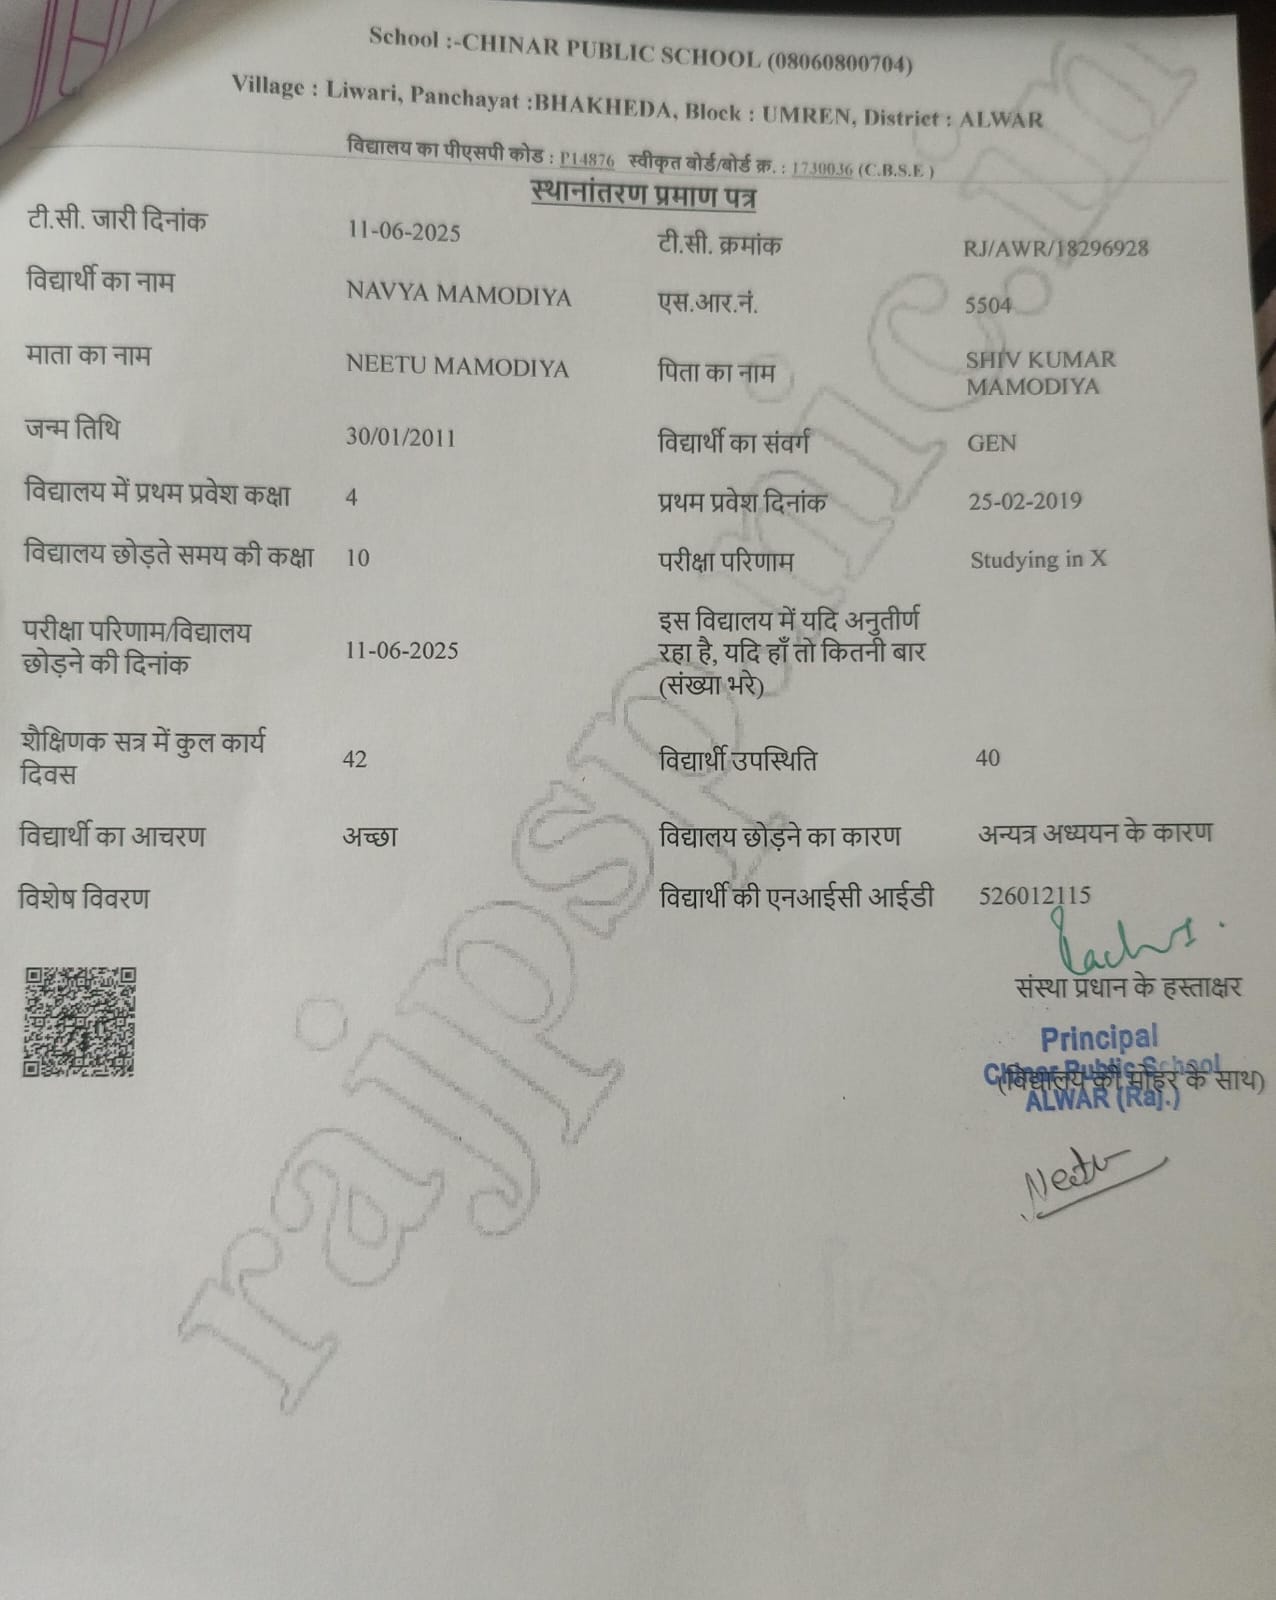 School :-CHINAR PUBLIC SCHOOL (08060800704)
Village : Liwari, Panchayat :BHAKHEDA, Block : UMREN, District : ALWAR
विद्यालय का पीएसपी कोड : P14876 स्वीकृत बोर्ड/बोर्ड क्र. : 1730036 (C.B.S.E )
स्थानांतरण प्रमाण पत्र
टी.सी. जारी दिनांक 11-06-2025 टी.सी. क्रमांक RJ/AWR/18296928
विद्यार्थी का नाम NAVYA MAMODIYA एस.आर.नं. 5504
माता का नाम NEETU MAMODIYA पिता का नाम SHIV KUMAR
MAMODIYA
जन्म तिथि 30/01/2011 विद्यार्थी का संवर्ग GEN
विद्यालय में प्रथम प्रवेश कक्षा 4 प्रथम प्रवेश दिनांक 25-02-2019
विद्यालय छोड़ते समय की कक्षा 10 परीक्षा परिणाम Studying in X
परीक्षा परिणाम/विद्यालय
छोड़ने की दिनांक 11-06-2025
इस विद्यालय में यदि अनुतीर्ण
रहा है, यदि हाँ तो कितनी बार
(संख्या भरे)
शैक्षिणक सत्र में कुल कार्य
दिवस 42 विद्यार्थी उपस्थिति 40
विद्यार्थी का आचरण अच्छा विद्यालय छोड़ने का कारण अन्यत्र अध्ययन के कारण
विशेष विवरण विद्यार्थी की एनआईसी आईडी 526012115
संस्था प्रधान के हस्ताक्षर
Principal
Chinar Public School
(विद्यालय की मोहर के साथ)
ALWAR (Raj.)
Neetu
rajpsp.nic.in